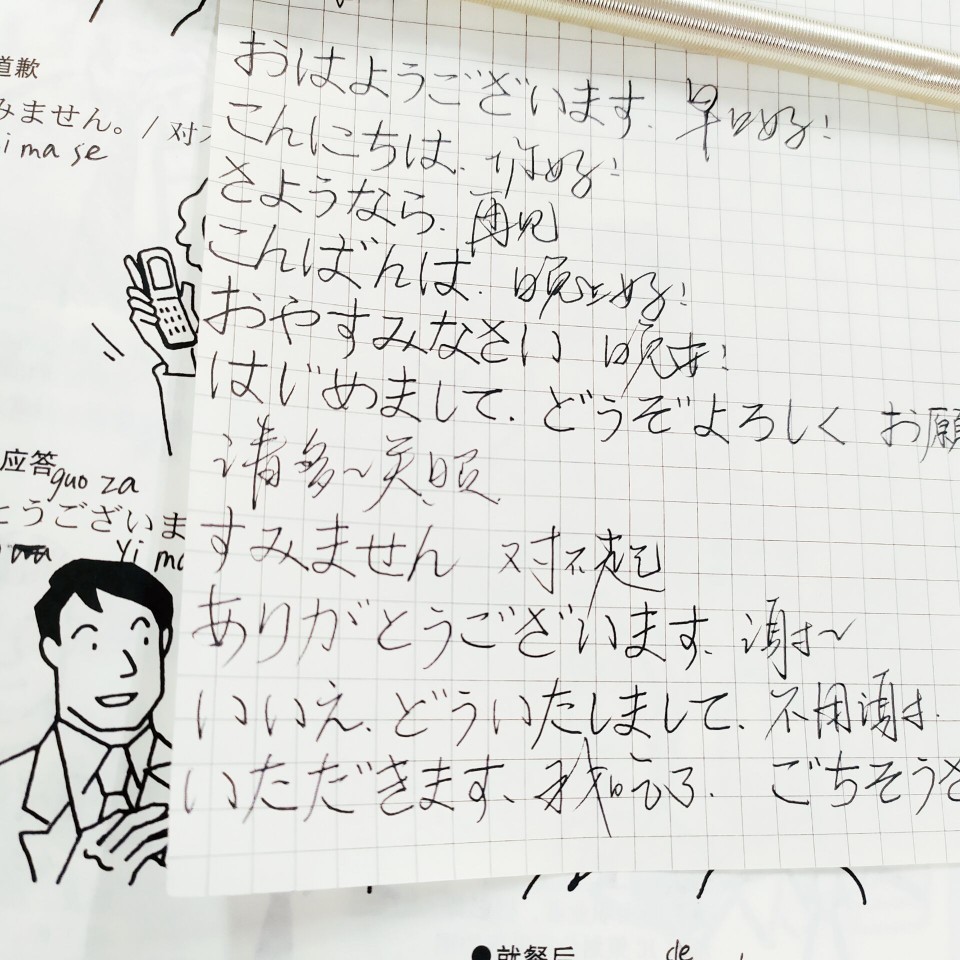 道歉
みません。/ 对
i ma se
应答
guo za
とうございま
yi ma
おはようございます. 早日好!
こんにちは. 你好!
さようなら. 再见
こんばんは. 晚上好!
おやすみなさい 晚安!
はじめまして. どうぞよろしく お願
请多~关照.
すみません 对不起
ありがとうございます. 谢~
いいえ. どういたしまして. 不用谢.
いただきます、我吃了. ごちそうさ
●就餐后
de